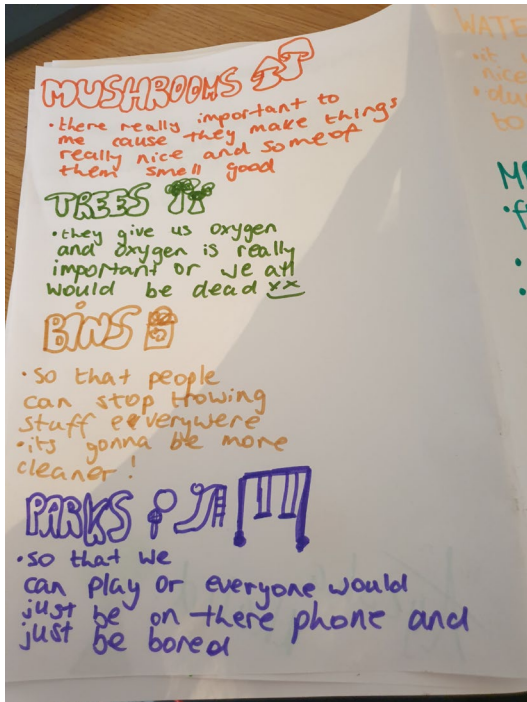 MUSHROOMS
•there really important to
me cause they make things
really nice and some of
them smell good
TREES
•they give us oxygen
and oxygen is really
important or we all
would be dead xx
BINS
•so that people
can stop trowing
stuff everywere
•its gonna be more
cleaner!
PARKS
•so that we
can play or everyone would
just be on there phone and
just be bored
WATE
•it
nice
•du
to
M
•f